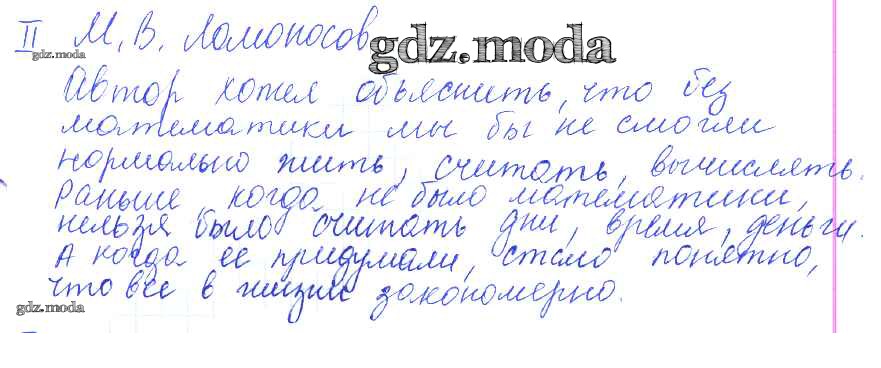 II М. В. Ломоносов
gdz.moda
gdz.moda
Автор хотел объяснить, что без
математики мы бы не смогли
нормально жить, считать, вычислять.
Раньше, когда не было математики,
нельзя было считать дни, время, деньги.
А когда ее придумали, стало понятно,
что все в жизни закономерно.
gdz.moda